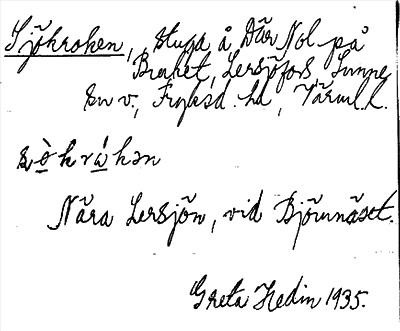 Sjökroken, stuga å Där Nol på
Braket, Lersjöfors Sunne
sn v., Fryksd. hd, Värml. l.
Nära Lersjön, vid Björnnäset.
Greta Hedin 1935.